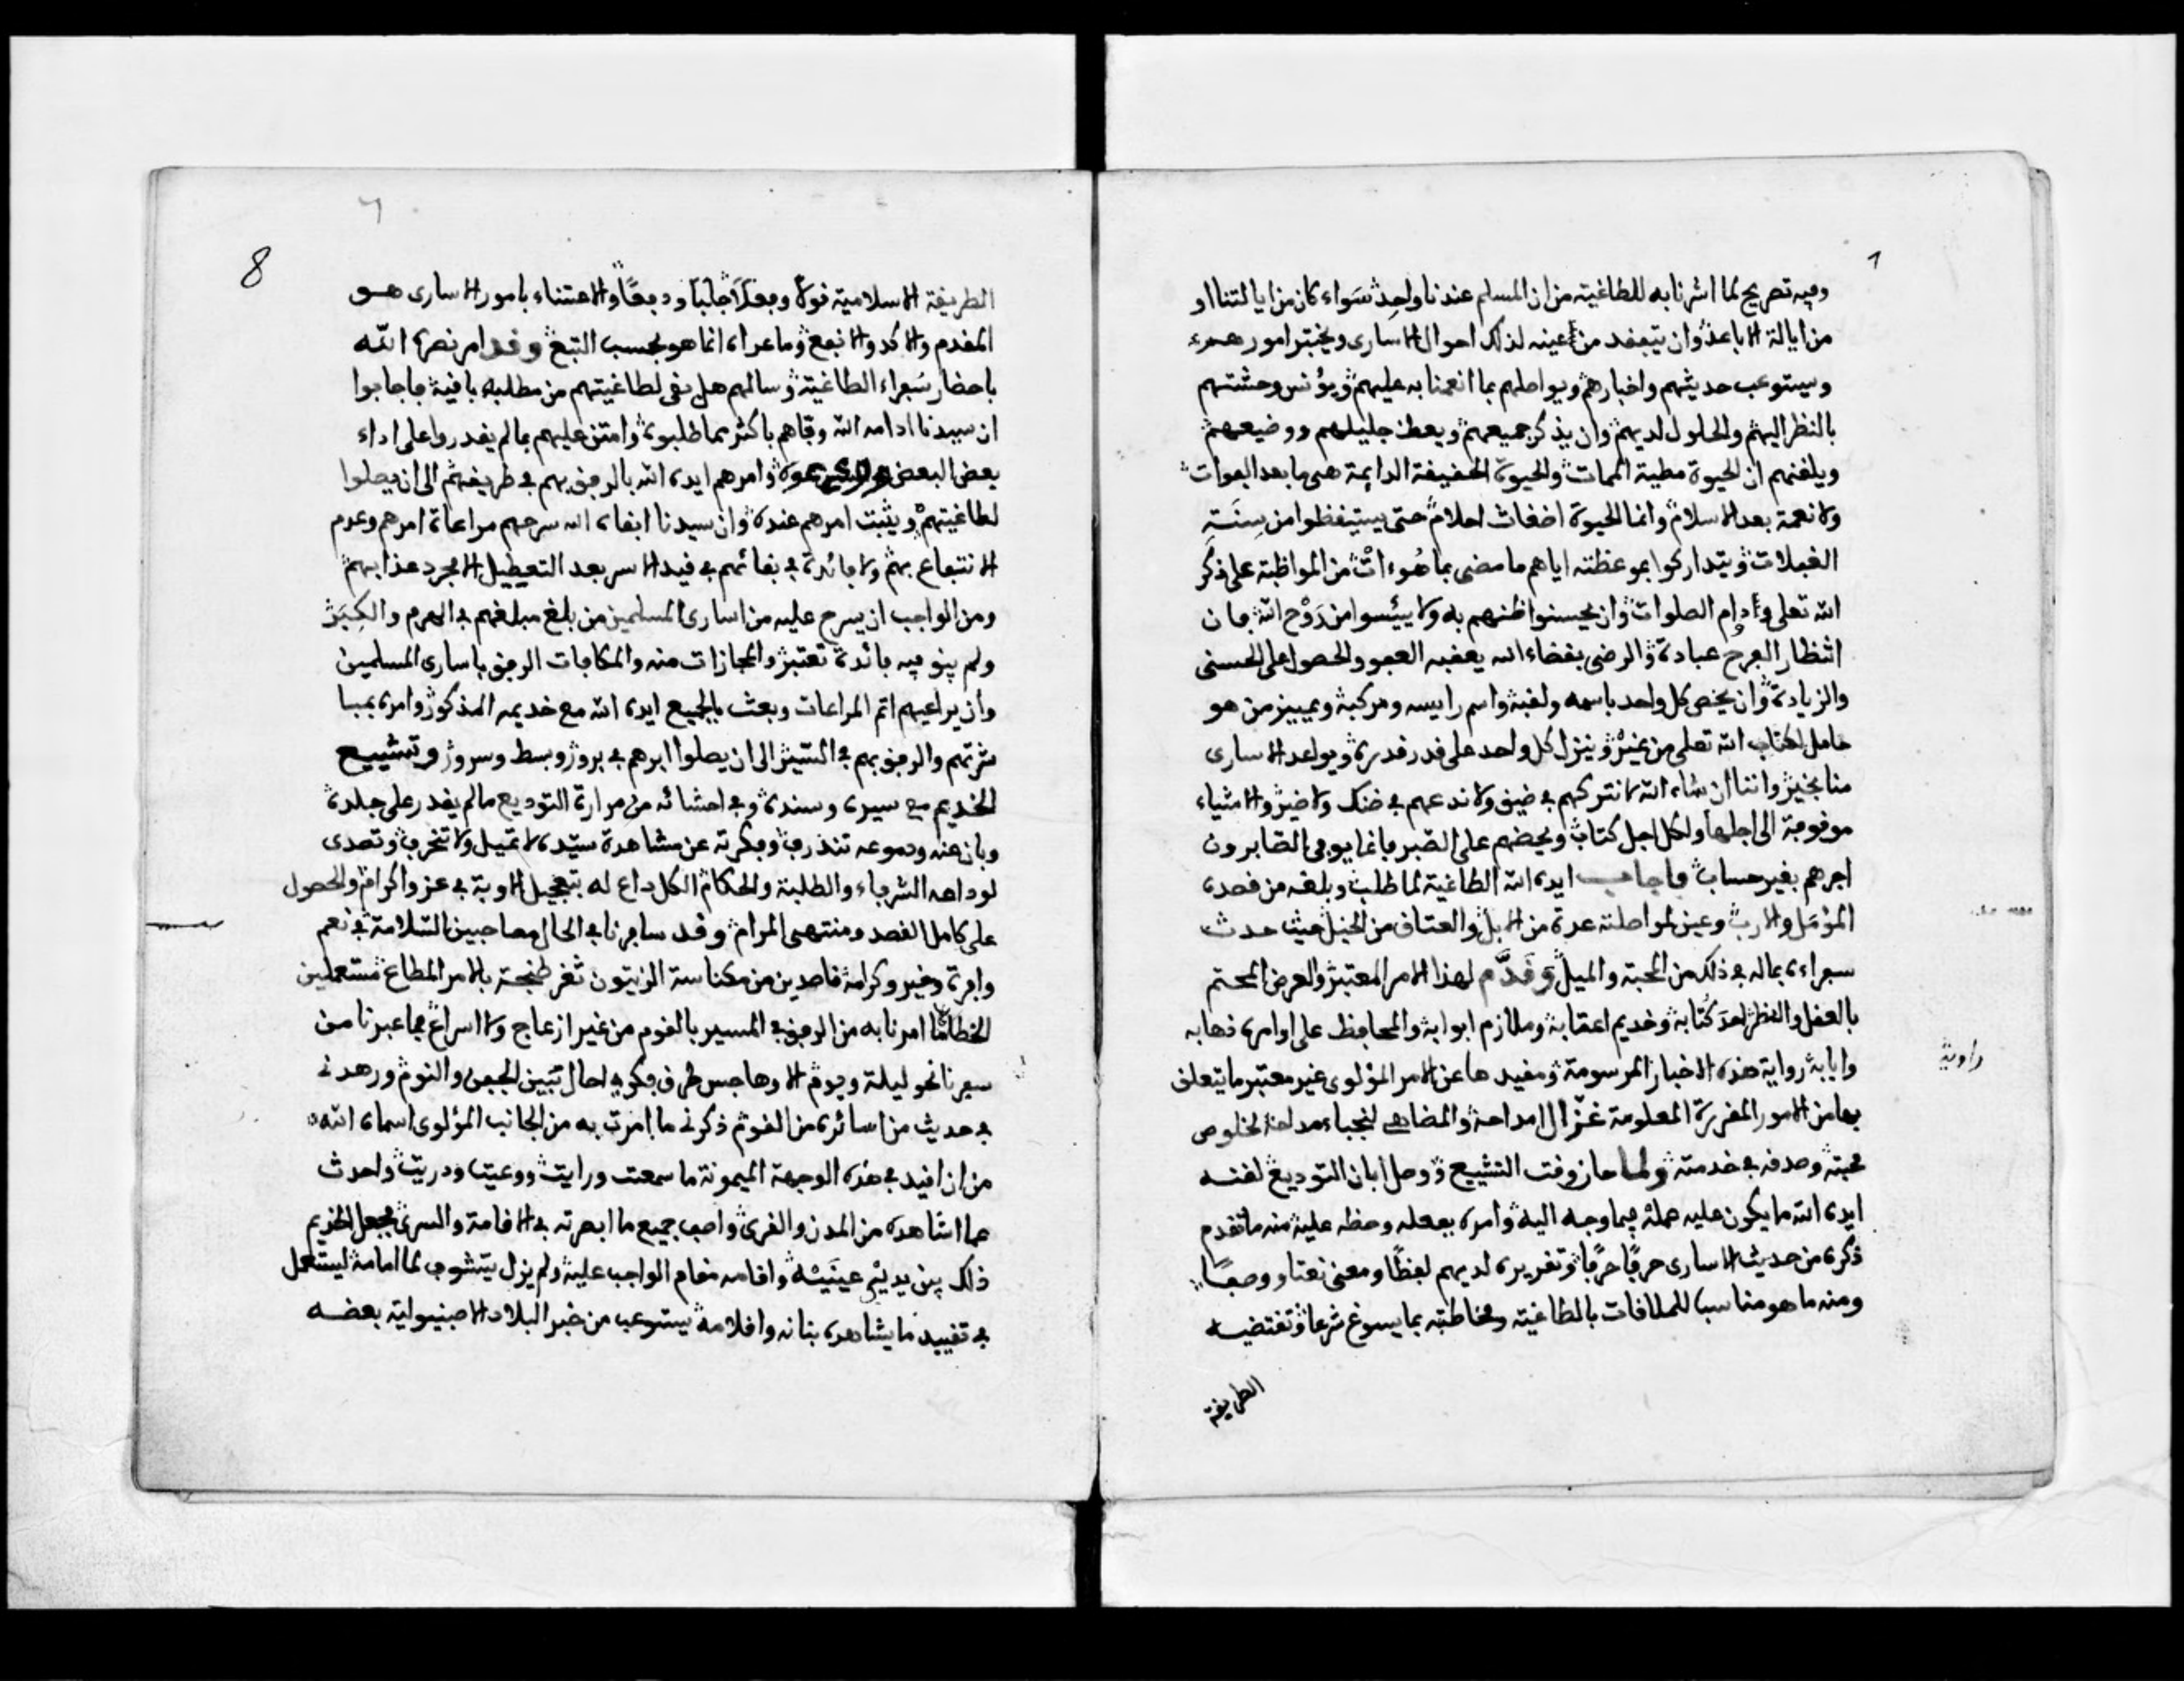 وفيه تصريح لما اشرنا به للطاغية من ان المسلم عندنا واحد سواء كان من ايالتنا او
من ايالة الاباعد وان يتفقد من اعينه لذلك احوال الاسارى ويختبر امورهم
ويستوعب حديثهم واخبارهم ويواصلهم بما انعمنا به عليهم ويؤنس وحشتهم
بالنظر اليهم والحلول لديهم وان يذكر جميعهم ويعظ جليلهم ووضيعهم
ويلقنهم ان الحيوة مطية الممات والحيوة الحقيقة الدايمة هى ما بعد الفوات
ولا نعمة بعد الاسلام وانما الحيوة اضغاث احلام حتى يستيقظوا من سنة
الغفلات ويتداركوا بموعظته اياهم ما مضى بما هو ءات من المواظبة على ذكر
الله تعلى وأدإم الصلوات وان يحسنوا ظنهم به ولا ييئسوا من روح الله فان
انتظار الفرج عبادة والرضى بقضاء الله يعقبه العفو والحصول على الحسنى
والزيادة وان يخص كل واحد باسمه ولقبه واسم رايسه ومركبه ويمييز من هو
حامل لكتاب الله تعلى من غيره وينزل كل واحد على قدر قدره ويواعد الاسارى
منا بخير واننا ان شاء الله لا نتركهم في ضيق ولا ندعهم في ضنك ولا ضير والاشياء
موقوفة الى اجلها ولكل اجل كتاب ويحضهم على الصبر فانما يوفى الصابرون
اجرهم بغير حساب فاجاب ايده الله الطاغية لما طلب وبلغه من قصده
المؤمل والارب وعين لمواصلته عدة من الابل والعتاق من الخيل حيث حدث
سفراءه بما له في ذلك من المحبة والميل وقدّم لهذا الامر المعتبر والغرض المحتم
بالعقل والنظر احد كتابه وخديم اعقابه وملازم ابوابه والمحافظ على اوامره ذهابه
وايابه رواية هذه الاخبار المرسومة ومقيدها عن الامر المؤلوى غير معتبر ما يتعلق
راوية
بها من الامور المقررة المعلومة غزّال امداحه والمضاهى لنجباء مداحه لخلوص
محبته وصدقه في خدمته ولما حان وقت التشييع ووصل ابان التوديع لقنه
ايده الله ما يكون عليه عمله فيما وجه اليه وامره بفعله وحظه عليه منه ما تقدم
ذكره من حديث الاسارى حرفا حرفا وتقريره لديهم لفظا ومعنى نعتا ووصفا
ومنه ما هو مناسب للملاقات بالطاغية ومخاطبته بما يسوغ شرعا وتقتضيه
الطريقة
8
الطريقة الاسلامية قولا وفعلا جلبا ودفعا والاعتناء بامور الاسارى هو
المقدم والاكد والانفع وما عداه انما هو بحسب التبع وقد امر نصره الله
باحضار سفراء الطاغية وسالهم هل بقى لطاغيتهم من مطلبه باقية فاجابوا
ان سيدنا ادامه الله وفاهم باكثر مما طلبوه وامتن عليهم بما لم يقدروا على اداء
بعض البعض وامرهم ايده الله بالرفق بهم في طريقهم الى ان يصلوا
لطاغيتهم ويثبت امرهم عنده وان سيدنا ابقاه الله سرحهم مراعاة امرهم وعدم
الانتفاع بهم ولا فائدة في بقائهم في قيد الاسر بعد التعطيل الا مجرد عذابهم
ومن الواجب ان يسرح عليه من اسارى المسلمين من بلغ مبلغهم في الهرم والكبر
ولم يبق فيه فائدة تعتبر والمجازات منه والمكافات الرفق باسارى المسلمين
وان يراعيهم اتم المراعات وبعث بالجميع ايده الله مع خديمه المذكور وامره بمبا
شرتهم والرفق بهم في السير الى ان يصلوا ابرهم في برور وبسط وسرور وتشييع
الخديم مع سيره وسنده وفي احشائه من مرارة التوديع ما لم يقدر على جلده
وبان عنه ودموعه تنذرف وفكرته عن مشاهدة سيّده لا تميل ولا تنحرف وتصدى
لوداعه الشرفاء والطلبة والحكام الكل داع له بتعجيل الاوبة في عز واكرام والحصول
على كامل القصد ومنتهى المرام وقد سافرنا في الحال مصاحبين السلامة في نعم
وافرة وخير وكرامة قاصدين من مكناسة الزيتون ثغر طنجة بالامر المطاع مستعملين
الخطا لما امرنا به من الرفق في المسير بالقوم من غير ازعاج ولا اسراع فما عبرنا من
سفرنا نحو ليلة ويوم الا وهاجس طرق فكرى في حال تبين الجفن والنوم ورهدنى
في حديث من اسائره من القوم ذكرنى ما امرت به من الجانب المؤلوى اسماه الله
من ان اقيد في هذه الوجهة الميمونة ما سمعت ورايت ووعيت ودريت واحدث
عما اشاهده من المدن والقرى واصف جميع ما ابصرته في الاقامة والسرى فجعل الخديم
ذلك بين يديْ عينَيْه واقامه مقام الواجب عليه ولم يزل يتشوف لما امامه ليستعمل
في تقييد ما يشاهده بنانه واقلامه يستوعب من خبر البلاد الاصبنيولية بعضه